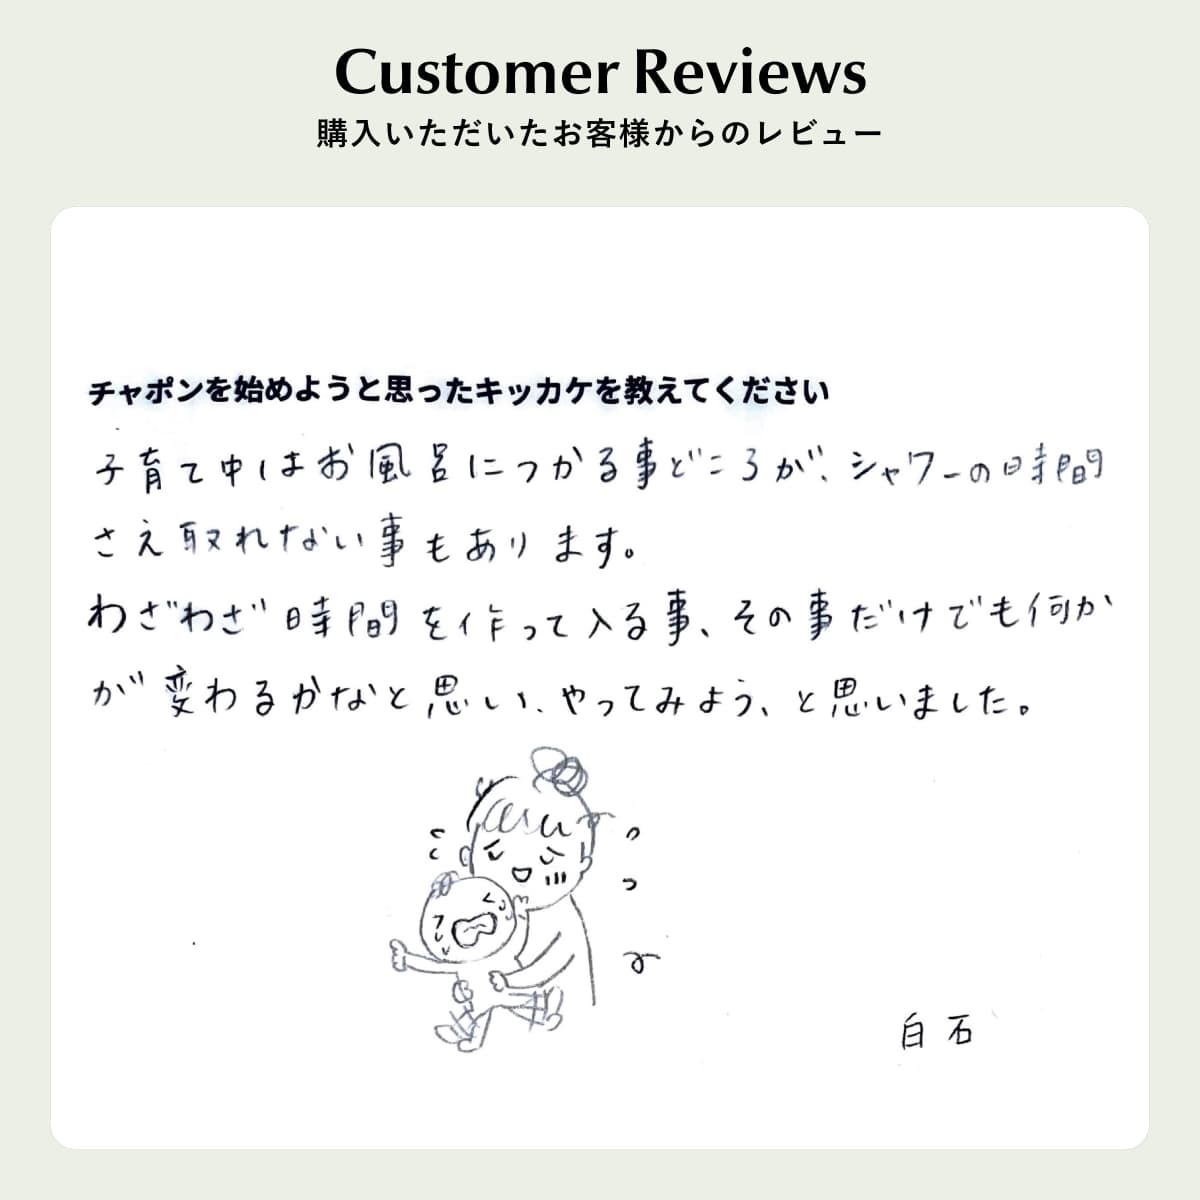 Customer Reviews
購入いただいたお客様からのレビュー
チャポンを始めようと思ったキッカケを教えてください
子育て中はお風呂につかる事どころか、シャワーの時間
さえ取れない事もあります。
わざわざ時間を作って入る事、その事だけでも何か
が変わるかなと思い、やってみよう、と思いました。
白石